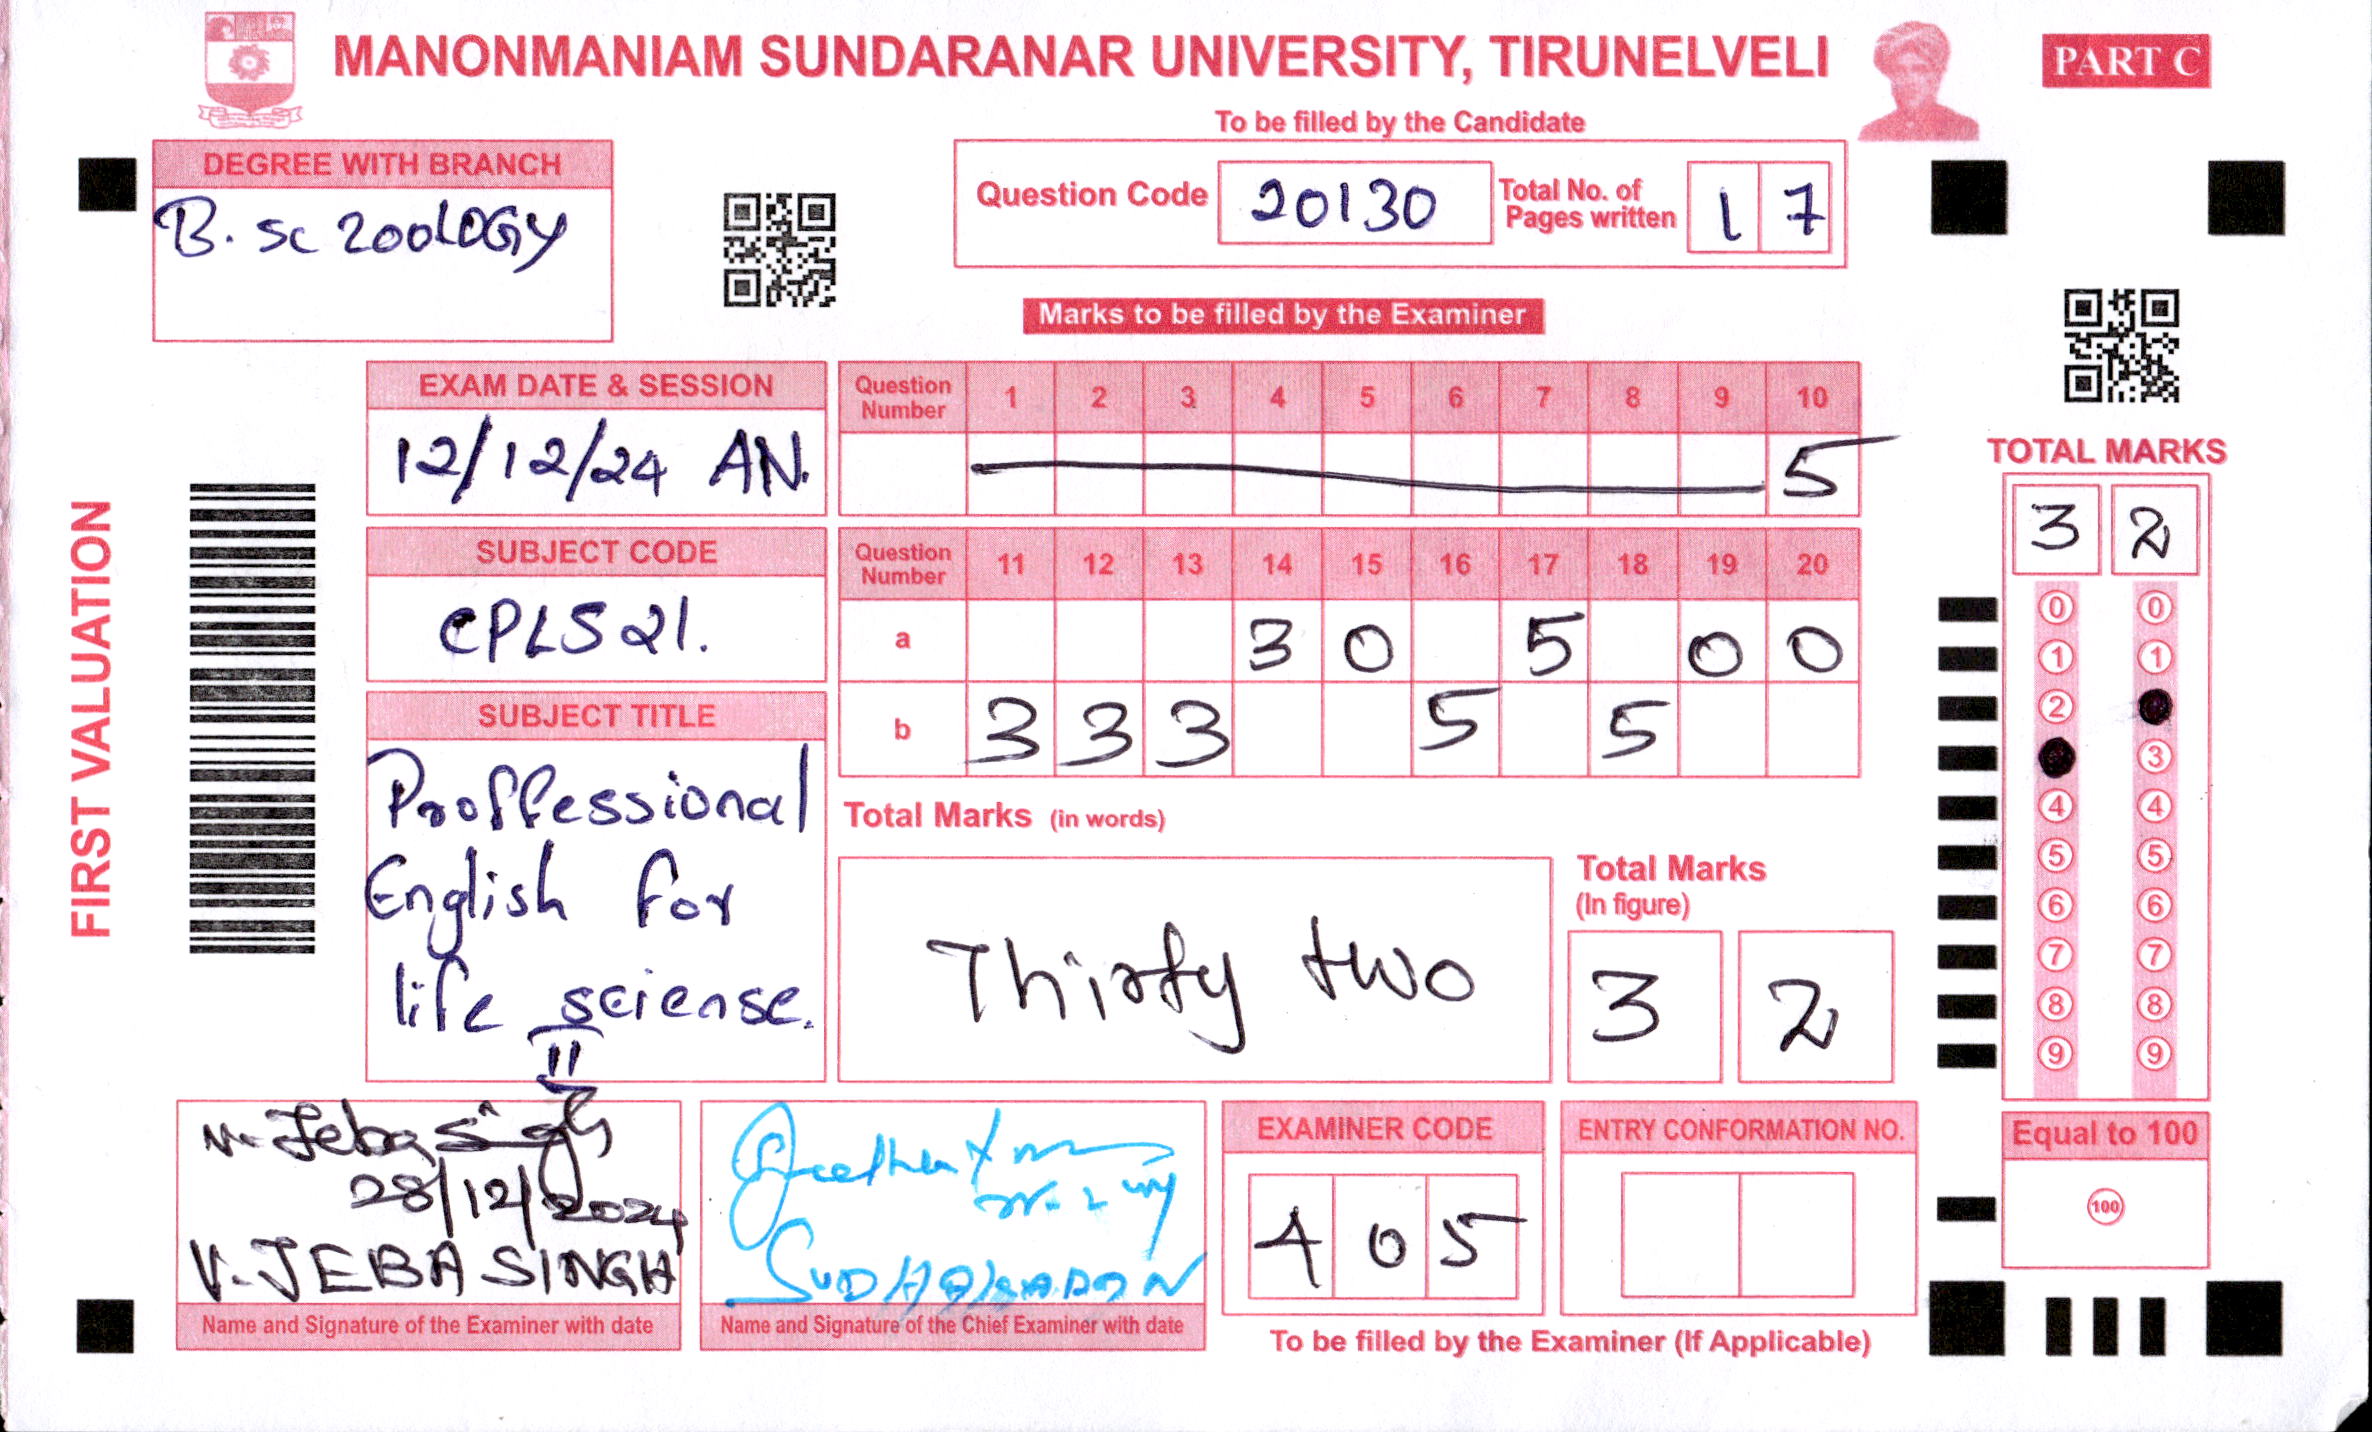 MANONMANIAM SUNDARANAR UNIVERSITY, TIRUNELVELI
PART C
To be filled by the Candidate
DEGREE WITH BRANCH
B. Sc ZooLOGY
Question Code 20130 Total No. of Pages written 1 7
Marks to be filled by the Examiner
EXAM DATE & SESSION
12/12/24 AN.
Question Number 1 2 3 4 5 6 7 8 9 10
5
SUBJECT CODE
CPLS21.
Question Number 11 12 13 14 15 16 17 18 19 20
a 3 0 5 0 0
b 3 3 3 5 5
SUBJECT TITLE
Proffessional
English for
life sciense.
Total Marks (in words)
Thirty two
Total Marks
(In figure)
3 2
TOTAL MARKS
3 2
0 0
1 1
2
3
4 4
5 5
6 6
7 7
8 8
9 9
Equal to 100
100
FIRST VALUATION
V. Jeba Singh
28/12/2024
V. JEBA SINGH
Name and Signature of the Examiner with date
Name and Signature of the Chief Examiner with date
EXAMINER CODE
4 0 5
ENTRY CONFORMATION NO.
To be filled by the Examiner (If Applicable)